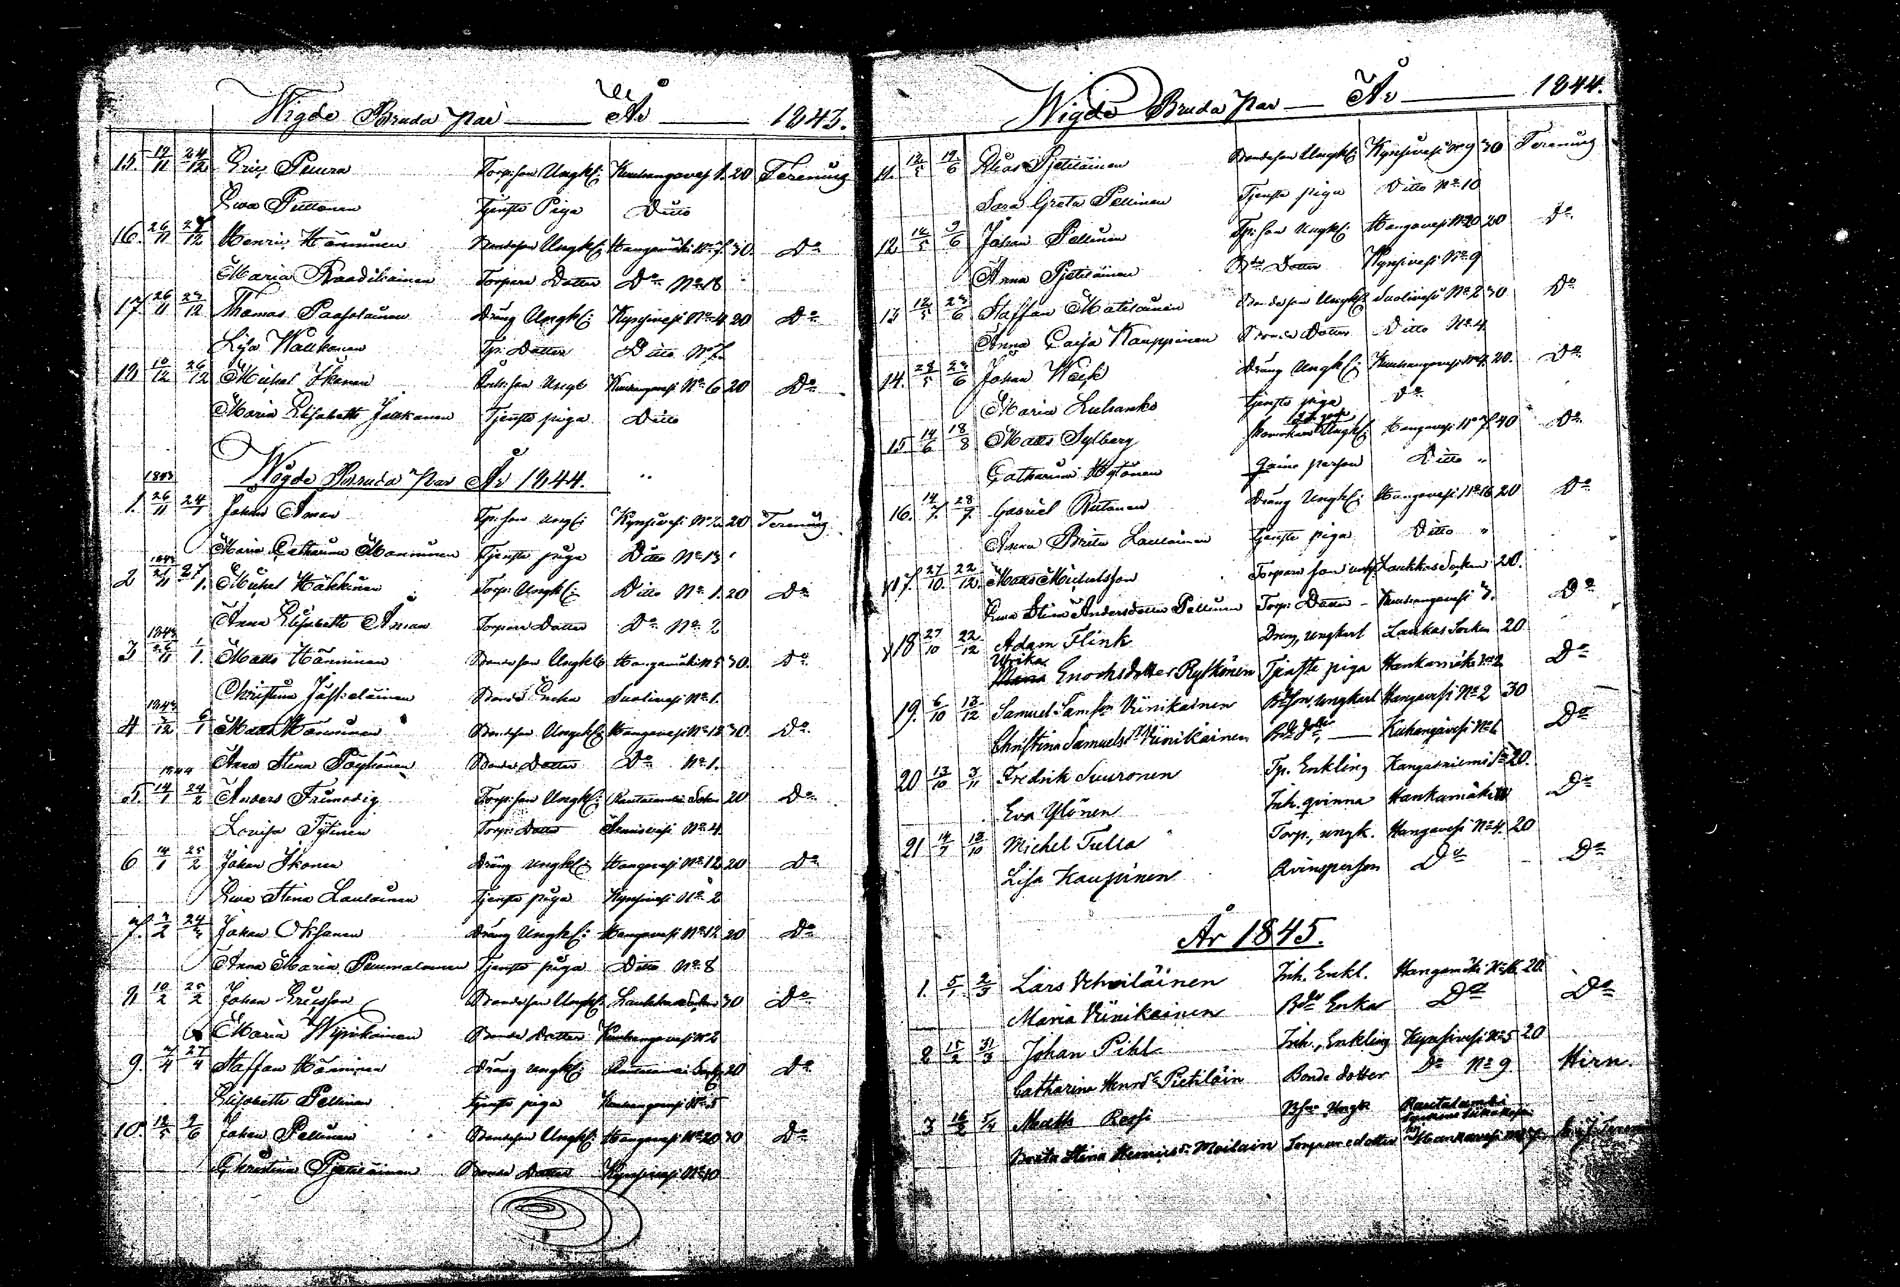 Wigde Bruda par — År — 1843.
15. 19/11 24/12 Eric Peura Torp:son Ungk: Kuuhangaves 1. 20 Terenius
Ewa Puttonen Tjenste Piga Ditto
16. 26/11 28/12 Henric Hänninen Bondeson Ungk: Hangamäki No 7. 30. Do
Maria Raatikainen Torpare Dotter Do No 18
17. 26/11 27/12 Thomas Paasolainen Dräng Ungk: Kynsivesi No 4 20 Do
Lisa Walkonen Tp: Dotter Ditto No 7.
18 10/12 26/12 Michel Ikonen Ungk Kuuhangavesi No 6 20 Do
Maria Elisabeth Jalkanen Tjenste piga Ditto
Wigde Bruda Par År 1844.
1843
1. 26/11 24/1 Johan Åman Tp: son Ungk: Kynsivesi No 2. 20 Terenius
Maria Catharina Manninen Tjenste piga Ditto No 13
1843
2 /11 27/1. Michel Häkkinen Torp: Ungk: Ditto No 1. 20 Do
Anna Elisabeth Åman Torpare Dotter Do No 2
1843
3 26/11 1/1. Matts Hänninen Bondeson Ungk: Hangamäki No 5 30. Do
Christina Jässeläinen Bonde Enka Suolivesi No 1.
1843
4 3/12 6/1 Matts Hänninen Bondeson Ungk: Hangavesi No 18 30. Do
Anna Stina Pöyhönen Bonde Dotter Do No 1.
1844
5. 14/1 24/2 Anders Frimodig Torp:son Ungk: Rautalambi Sokn 20 Do
Lovisa Tytinen Torp: Dotter Armisvesi No 4.
6 14/1 25/2 Johan Ikonen Dräng Ungk: Hangavesi No 12 20 Do
Ewa Stina Laulainen Tjenste piga Kynsivesi No 2
7. 2/2 24/3 Johan Oksanen Dräng Ungk: Hangavesi No 12 20 Do
Anna Maria Parmalainen Tjenste piga Ditto No 8
8 10/2 25/2 Johan Ericsson Bondeson Ungk: Laukkas Sokn 30 Do
Maria Wynikainen Bonde Dotter Kuuhangavesi No 2
9. 7/4 27/4 Staffan Hänninen Dräng Ungk: Rautalambi Sokn 20 Do
Elisabeth Pellinen Tjenste piga Kuuhangavesi No 5
10. 12/5 9/6 Johan Pellinen Bondeson Ungk: Hangavesi No 20 30 Do
Christina Pjetiläinen Bonde Dotter Kynsivesi No 10
Wigde Bruda Par — År — 1844.
11. 12/5 19/6 Elias Pjetiläinen Bondeson Ungk: Kynsivesi No 9 30 Terenius
Sara Greta Pellinen Tjenste piga Ditto No 10
12 12/5 9/6 Johan Pellinen Tp: son Ungk: Hangavesi No 20 20 Do
Anna Pjetiläinen Bde Dotter Kynsivesi No 9
13 12/5 23/6 Staffan Matilainen Bondeson Ungk: Suolivesi No 2 30 Do
Anna Caisa Kauppinen Bonde Dotter Ditto No 4
14. 28/5 23/6 Johan Weck Dräng Ungk: Kuuhangavesi No 4. 20. Do
Maria Luhanko Tjenste piga Do
15 14/6 18/8 Matts Sylberg Ungk: Hangavesi No 7 40 Do
Catharina Hytönen Qvins person Ditto "
16. 14/7. 28/7 Gabriel Riitonen Dräng Ungk: Hangavesi No 16 20 Do
Anna Brita Laulainen Tjenste piga Ditto "
17. 27/10. 22/12. Matts Michelsson Torpare son ungk: Laukkas Sokn 20.
Ewa Stina Andersdotter Pellinen Torp: Dotter — Kuuhangavesi 7. Do
18 27/10 22/12 Adam Flink Dreng, ungkarl Laukas Socken 20
Ulrika Enochsdotter Rytkönen Tjenste piga Hankamäki No 2 Do
19. 6/10 13/12 Samuel Samson Viinikainen Bdeson, ungkarl Hangavesi No 2 30
Christina Samuelsdr Viinikainen Bde dotter — Kuhangavesi No 6 Do
20 13/10 3/11 Fredrik Suuronen Tp. Enkling Kangasniemi Sn 20.
Eva Ylönen Inh. qvinna Hankamäki Do
21 14/7 13/10 Michel Tulla Torp, ungk. Hangavesi No 4. 20
Lisa Kaupinen Qvinsperson Do Do
År 1845.
1. 5/1 2/3 Lars Vehviläinen Inh. Enkl. Hangamäki No 16. 20.
Maria Viinikainen Bde Enka Do Do
2 15/2 31/3 Johan Pihl Inh., Enkling Kynsivesi No 5 20
Catharina Henrsdr Pietiläin Bonde dotter Do No 9 Hirn.
3 16/2 5/4 Matts Rossi Bson Ungk Rautalambi
Brita Stina Henricsdr Moilain Torpare dotter Hankavesi